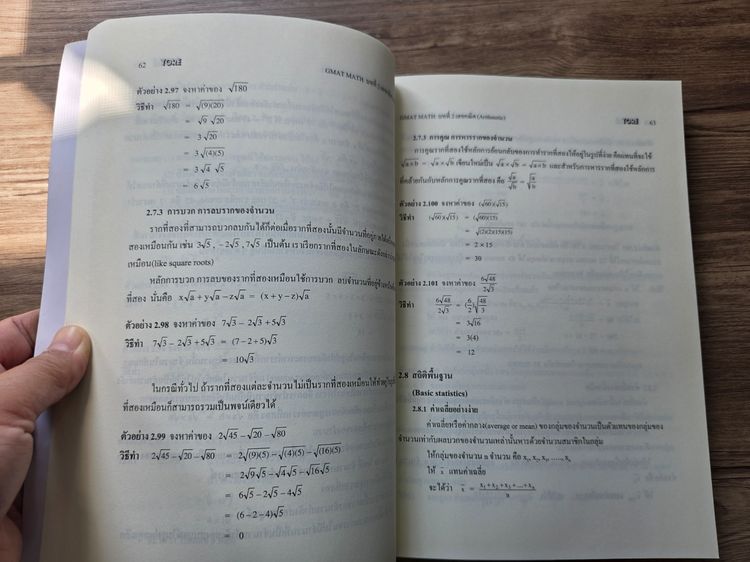 62 TORE
GMAT MATH บทที่ 2
ตัวอย่าง 2.97 จงหาค่าของ √180
วิธีทำ √180 = √(9)(20)
= √9 √20
= 3 √20
= 3 √(4)(5)
= 3 √4 √5
= 6 √5
2.7.3 การบวก การลบรากของจำนวน
รากที่สองที่สามารถบวกลบกันได้ก็ต่อเมื่อรากที่สองนั้นมีจำนวนที่อยู่ภายใต้
สองเหมือนกัน เช่น 3√5 , − 2√5 , 7√5 เป็นต้น เราเรียกรากที่สองในลักษณะดังกล่าว
เหมือน(like square roots)
หลักการบวก การลบของรากที่สองเหมือนใช้การบวก ลบจำนวนที่อยู่ข้างหน้า
ที่สอง นั่นคือ x√a + y√a − z√a = (x + y − z)√a
ตัวอย่าง 2.98 จงหาค่าของ 7√3 − 2√3 + 5√3
วิธีทำ 7√3 − 2√3 + 5√3 = (7 − 2 + 5)√3
= 10√3
ในกรณีทั่วไป ถ้ารากที่สองแต่ละจำนวนไม่เป็นรากที่สองเหมือนให้ทำ
ที่สองเหมือนก็สามารถรวมเป็นพจน์เดียวได้
ตัวอย่าง 2.99 จงหาค่าของ 2√45 − √20 − √80
วิธีทำ 2√45 − √20 − √80 = 2√(9)(5) − √(4)(5) − √(16)(5)
= 2√9√5 − √4√5 − √16√5
= 6√5 − 2√5 − 4√5
= (6 − 2 − 4)√5
= 0
GMAT MATH บทที่ 2 เลขคณิต (Arithmetic) TORE 63
2.7.3 การคูณ การหารรากของจำนวน
การคูณรากที่สองใช้หลักการย้อนกลับของการทำรากที่สองให้อยู่ในรูปที่ง่าย คือแทนที่จะใช้
√a × b = √a × √b เขียนใหม่เป็น √a × √b = √a × b และสำหรับการหารรากที่สองใช้หลักการ
ที่คล้ายกันกับหลักการคูณรากที่สอง คือ √a/√b = √(a/b)
ตัวอย่าง 2.100 จงหาค่าของ (√60)(√15)
วิธีทำ (√60)(√15) = √(60)(15)
= √(2)(2)(15)(15)
= 2 × 15
= 30
ตัวอย่าง 2.101 จงหาค่าของ 6√48/2√3
วิธีทำ 6√48/2√3 = (6/2)√(48/3)
= 3√16
= 3(4)
= 12
2.8 สถิติพื้นฐาน
(Basic statistics)
2.8.1 ค่าเฉลี่ยอย่างง่าย
ค่าเฉลี่ยหรือค่ากลาง(average or mean) ของกลุ่มของจำนวนเป็นตัวแทนของกลุ่มของ
จำนวนเท่ากับผลบวกของจำนวนเหล่านั้นหารด้วยจำนวนสมาชิกในกลุ่ม
ให้กลุ่มของจำนวน n จำนวน คือ x₁, x₂, x₃, ....., xₙ
ให้ x̄ แทนค่าเฉลี่ย
จะได้ว่า x̄ = (x₁ + x₂ + x₃ + ... + xₙ)/n